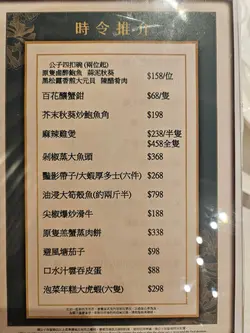 時令推介
公子四扣碗 (兩位起)
原隻鹵醉鮑魚 蒜泥秋葵
黑松露香煎大元貝 陳醋骨肉
$158/位
百花釀蟹鉗 $68/隻
芥末秋葵炒鮑魚角 $198
麻辣雞煲 $238/半隻
$458全隻
剁椒蒸大魚頭 $368
豔影帶子/大蝦厚多士(六件) $268
油浸大筍殼魚(約兩斤半) $798
尖椒爆炒滑牛 $188
原隻羔蟹蒸肉餅 $338
避風塘茄子 $98
口水汁雲吞皮蛋 $88
泡菜年糕大虎蝦(六隻) $298